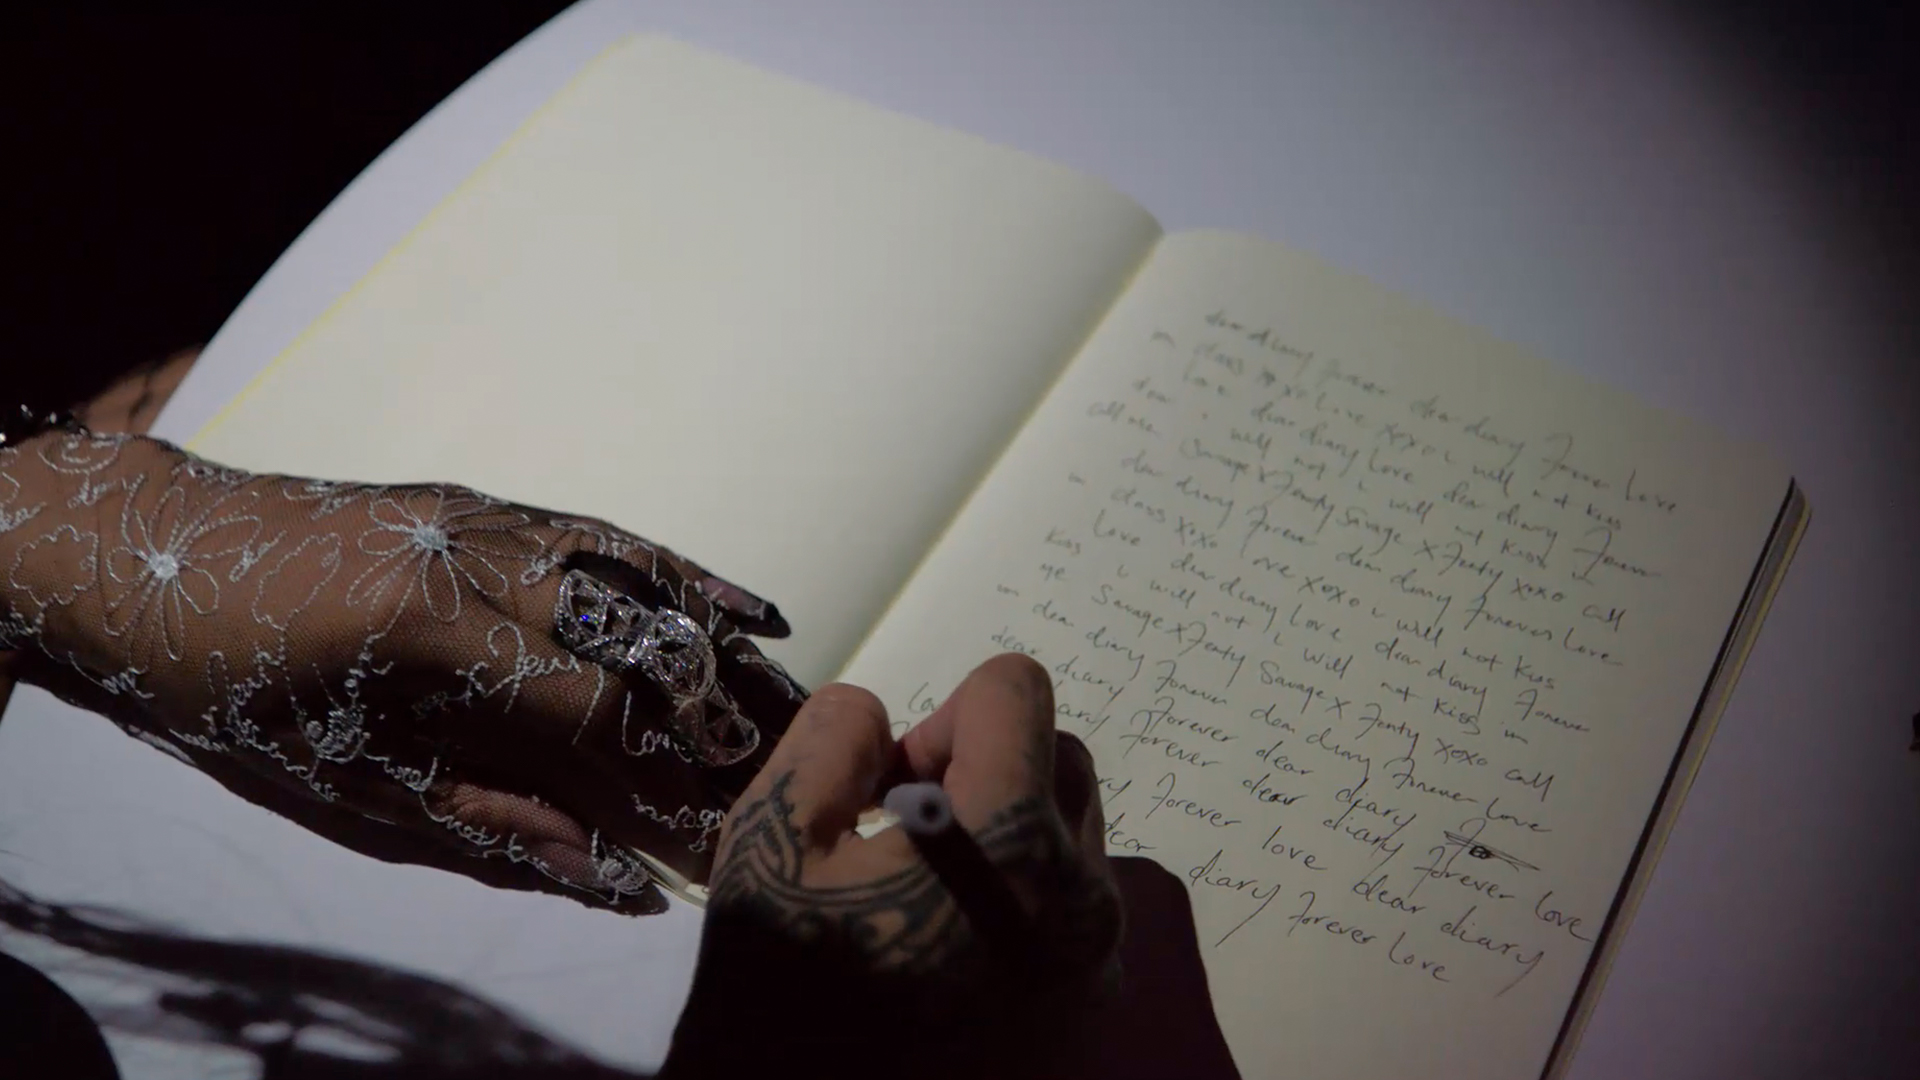 dear diary forever dear diary Forever Love
in class xoxo Love xoxo i will not kiss
Love dear diary Love dear diary Forever
dear i will not i will not Kiss in
call me Savage x Fenty Savage x Fenty xoxo call
dear diary Forever dear diary Forever Love
in class xoxo love xoxo i will not kiss
Love dear diary Love dear diary Forever
Kiss i will not i will not Kiss in
me Savage x Fenty Savage x Fenty xoxo call
in dear diary Forever dear diary Forever Love
dear diary Forever dear diary
Lov iary Forever dear diary Forever Love
ry Forever love dear diary
dear diary Forever Love
love